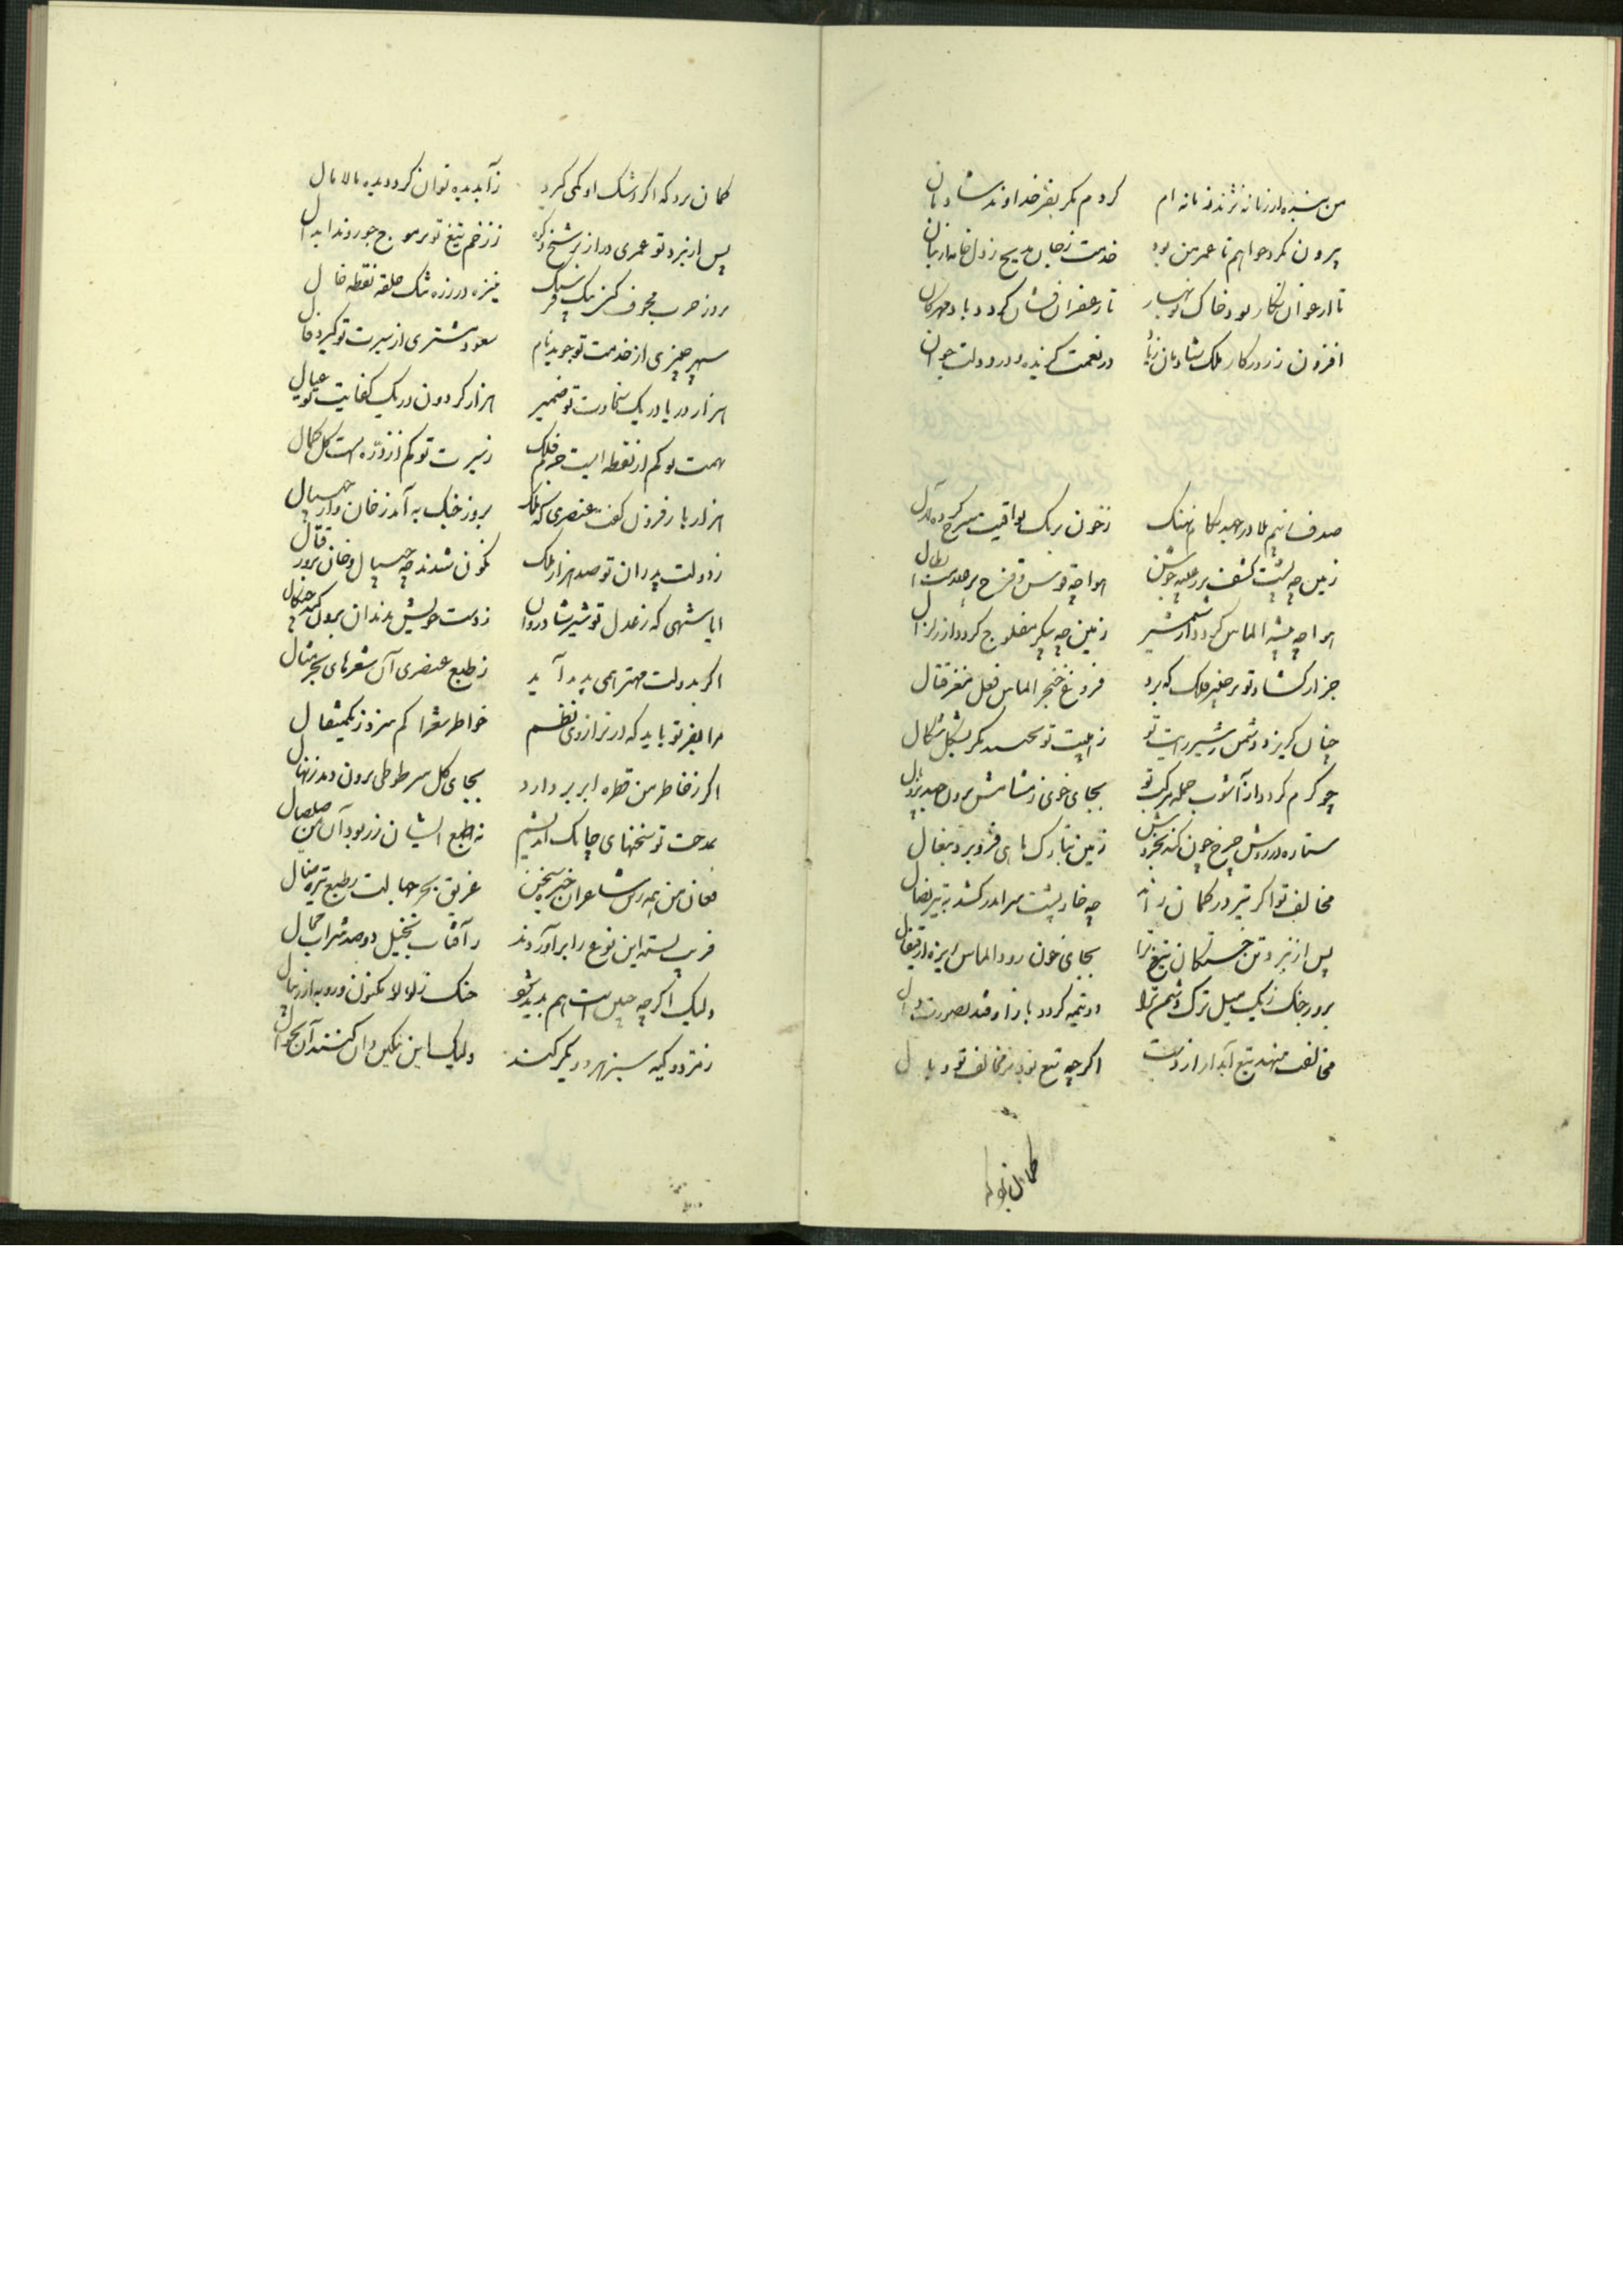 من بنده از زمانه نژند زمانه ام کردم مکر بفر خداوند شادمان
بیرون نکرد خواهم تا عمر من بود خدمت زجان مدیح زدل خامه از بنان
تا ارغوان نکار بود خاک نوبهار تا زعفران فشان کردد باد مهرکان
افزون ز روزکار ملک شادمان زیاد در نعمت کزیده و در دولت جوان
صدف نیم بلا در جهد بکام نهنک زخون برنک یواقیت سرخ کرده لآل
زمین چه پشت کشف بر زحلیه جوشن هوا چه قوس و قزح پر
هوا چه پیشه الماس کردد از شمشیر زمین چه پیکر مفلوج کردد از زلزال
جز از کشاد تو بر جفر فلک که برد فروغ خنجر الماس فعل مغز قتال
چنان کریزد دشمن ز شیر رایت تو ز هیبت تو نحسبد مکر بشکل شکال
چو کرم کردد از آشوب حمله مرکب تو بجای خوی ز مشامش برون جهد
ستاره در روش چرخ چون کند بخروش زمین بتارک ماهی فرو برد بنعال
مخالف تو اکر تیر در کمان راند چه خارپشت سر اندر کشد به تیر نصال
پس از نبرد تن خستکان تیغ ترا بجای خون رود الماس ریزه از قیفال
بروز جنک ز یک میل ترک دشمن ترا دو نیمه کردد باز اوفتد بصورت دال
مخالف نهند تیغ آبدار از دست اکرچه تیغ بود بر مخالف تو وبال
کمان برد که
کمان برد که اکر اشک او کمی کیرد ز آب دیده توان کرد دیده مالامال
پس از نبرد تو عمری دراز بر شخ و که ز زخم تیغ تو بر موج خود روند ابدال
بروز حرب مجوف کنی بیک نیزه در زره تنک حلقه نقطه خال
سپهر چیزی از خدمت تو جوید نام سعود مشتری از سیرت تو کیرد فال
هزار دریا در یک سخاوت تو ضمیر هزار کردون در یک کفایت تو عیال
بهمت تو کم از نقطه ایست جرم فلک ز سیرت تو کم از ذره است کل کمال
هزار بار فزون کفت عنصری که ملک بروز جنک به آمد ز خان و از چیپال
ز دولت پدران تو صد هزار ملک نکون شدند چه چیپال و خان بروز قتال
ایا شهی که ز عدل تو شیر شادروان ز دست خویش بدندان برون کند چنکال
اکر بدولت مهتر همی پدید آید ز طبع عنصری آن شعرهای سحر مثال
مرا بفر تو باید که در ترازوی نظم خواطر شعرا کم سزد ز یکمثقال
اکر ز خاطر من قطره ابر بردارد بجای کل سر طوطی برون دمد ز نهال
بمدحت تو سخنهای چابک اندیشم نه طبع ایشان زر بود آن من صلصال
فغان من همه زین شاعران خیره سخن غریق بحر جهالت بطبع تیره منال
فریب بسته این نوع را بر آوردند ز آفتاب تخییل دو صد شراب محال
ولیک اکرچه چنین است هم پدید شود خنک ز لؤلؤ مکنون و روبه از ریبال
زمرد و کیه سبز هر دو یکرنکند ولیک این بنکین دان کنند آن بجوال